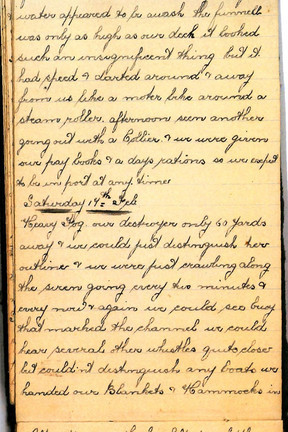 water appeared to be awash the funnell
was only as high as our deck it looked
such an insignificent thing but it
had speed & darted around & away
from us like a moter bike around a
steam roller. afternoon seen another
going out with a Collier. & we were given
our pay books & a days rations so we expect
to be in port at any time
Saturday 17th Feb
Heavy Fog. our destroyer only 60 yards
away & we could just distinguish her
outline & we were just crawling along
the siren going every two minutes &
every now & again we could see buoy
that marked the channel we could
hear several other whistles quite close
but couldn't distinguish any boats we
handed our Blankets & Hammocks in